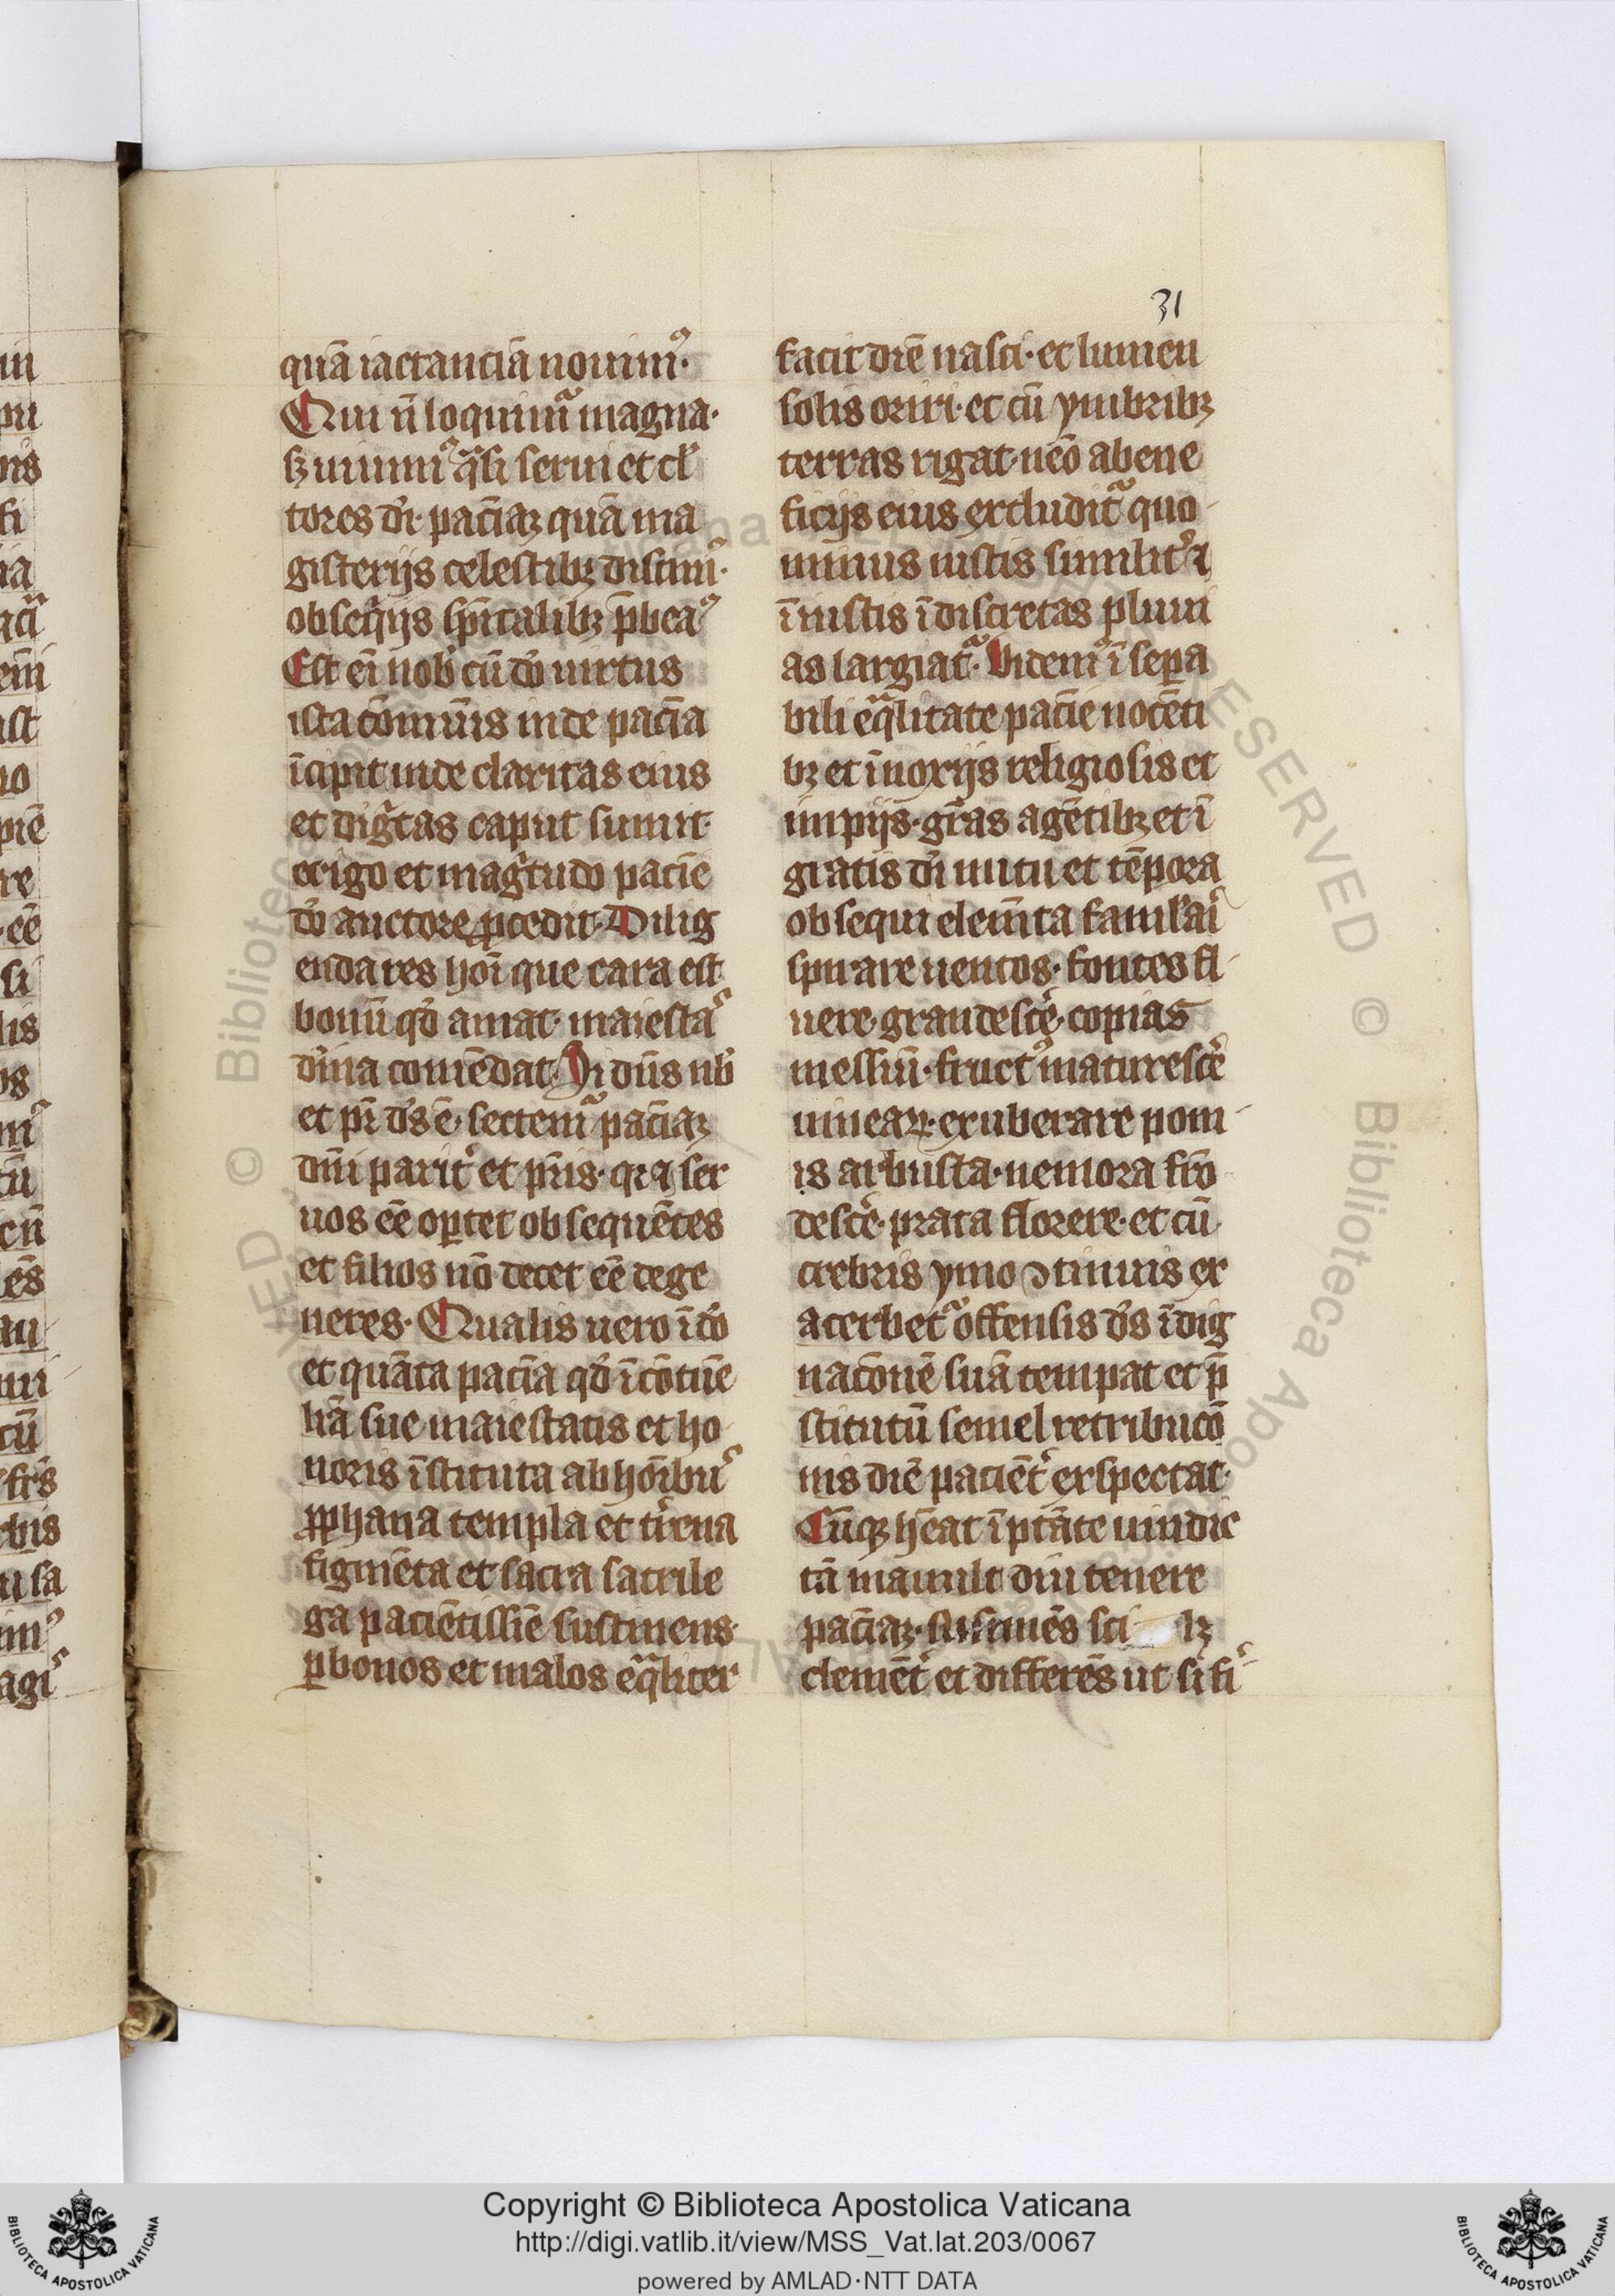 31
quā iactanciā nouimꝰ.
Qui n̄ loquimᷓ magna.
sꝫ uiuimꝰ qᷓsi serui et cl̓
tores di̓. paciaꝫ quā ma
gisterijs celestibꝫ discimꝰ.
obseqijs sp̄italibꝫ p̄beaꝰ
Est ei̓ nob̓ cū do̓ uirtus
ista cōmūis inde paciā
īcipit inde claritas eius
et dig̓tas caput sumit.
origo et mag̓tudo pacīe
do̓ auctore ꝓcedit. Dilig
enda res hoi̓ que cara est
bonū qđ amat maiestaˢ
d̓ina comēdat. Si dn̄s nb̓
et pr̄ ds̓ ē. sectemᷓ paciaꝫ
dn̄i parit̓ et pr̄is. qꝛ ⁊ ser
uos eē oꝑtet obsequētes
et filios nō decet eē dege
neres. Qualis uero ī do̓
et quāta paciā qđ ī cōtūe
liā sue maiestatis et ho
noris īstituta ab hoībuˢ
ꝓphana templa et tr̓ena
figmēta et sacra sacrile
ga pacientissīe sustinens.
ꝑ bonos et malos eqᷓliter
facit diē nasci. et lumen
solis oriri. et cū ymbribꝫ
terras rigat. neō a bene
ficijs eius excluditᷓ quo
minus iustis similit̓ ⁊
īiustis īdiscretas pluui
as largiatᷓ. Videmꝰ īsepa
bili eqᷓlitate pacīe nocēti
bꝫ et īnoxijs religiosis et
impijs. gr̄as agētibꝫ et ī
gratis di̓ nutu et tēpora
obsequi elem̄ta famlᷓaiˢ
spirare uentos. fontes fl
uere. grandesce̓. copias
messiū. fructꝰ maturesce̓
uineaꝝ. exuberare pom
is arbusta. nemora frō
desce̓. prata florere. et cū
crebris ymo ↄtinuis ex
acerbetᷓ offensis ds̓ īdig
nacōnē suā tempat et p̄
stitutū semel retribucō
nis diē pacient̓ exspectat.
Cūqꝫ hēat ī ptāte uindic
tā mauult diu tenere
paciaꝫ. sustinēs sci ꝫ
clemēt̓ et differēs ut si fiˢ
Copyright © Biblioteca Apostolica Vaticana
http://digi.vatlib.it/view/MSS_Vat.lat.203/0067
powered by AMLAD·NTT DATA
BIBLIOTECA APOSTOLICA VATICANA
BIBLIOTECA APOSTOLICA VATICANA